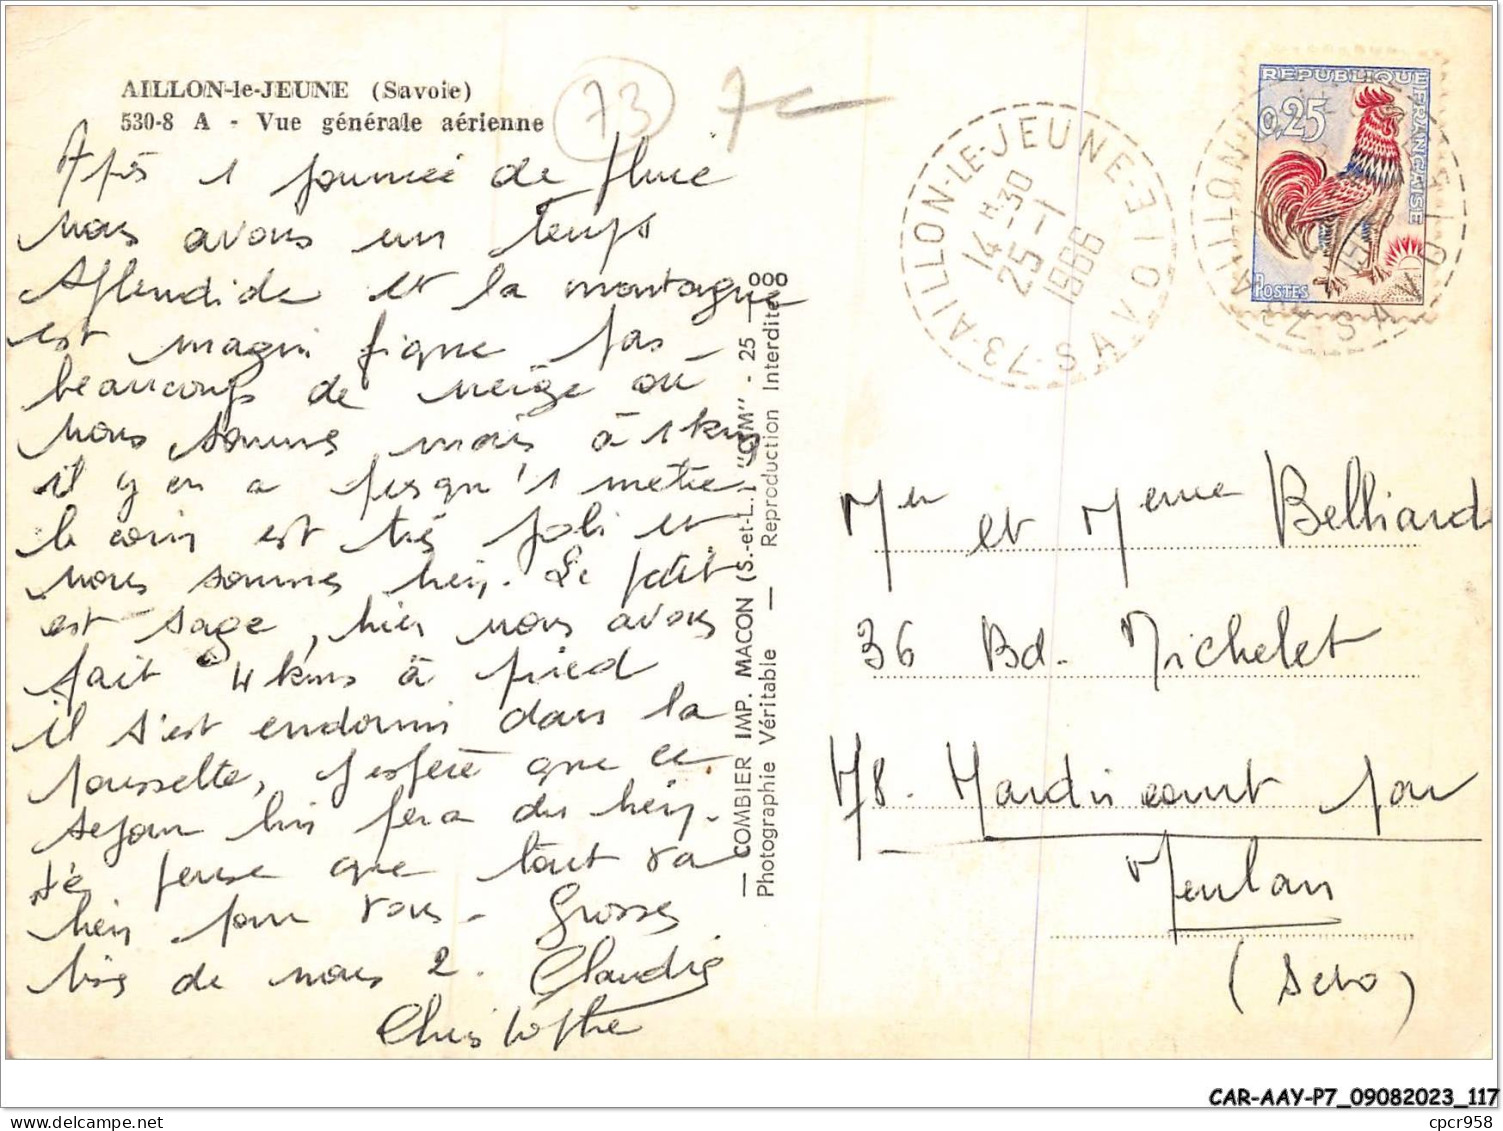 AILLON-le-JEUNE (Savoie)
530-8 A - Vue générale aérienne
73
Après 1 journée de pluie
nous avons un temps
splendide et la montagne
est magnifique pas
beaucoup de neige où
nous sommes mais à 1 km
il y en a jusqu'1 mètre
le coin est très joli et
nous sommes bien. Le petit
est sage, hier nous avons
fait 4 kms à pied
il s'est endormi dans la
poussette, j'espère que ce
séjour lui fera du bien.
Je pense que tout va
bien pour vous - Grosses
bises de nous 2. Claudie
Christophe
— COMBIER IMP. MACON (S.-et-L.) "CIM" - 25 — ooo
Photographie Véritable — Reproduction Interdite
73-AILLON-LE-JEUNE-SAVOIE
14 H -30
25 -1
1966
REPUBLIQUE FRANÇAISE
0,25
POSTES
Mr et Mme Belliard
36 Bd. Michelet
78. Hardricourt par
Meulan
(S et O)
CAR-AAY-P7_09082023_117
cpcr958